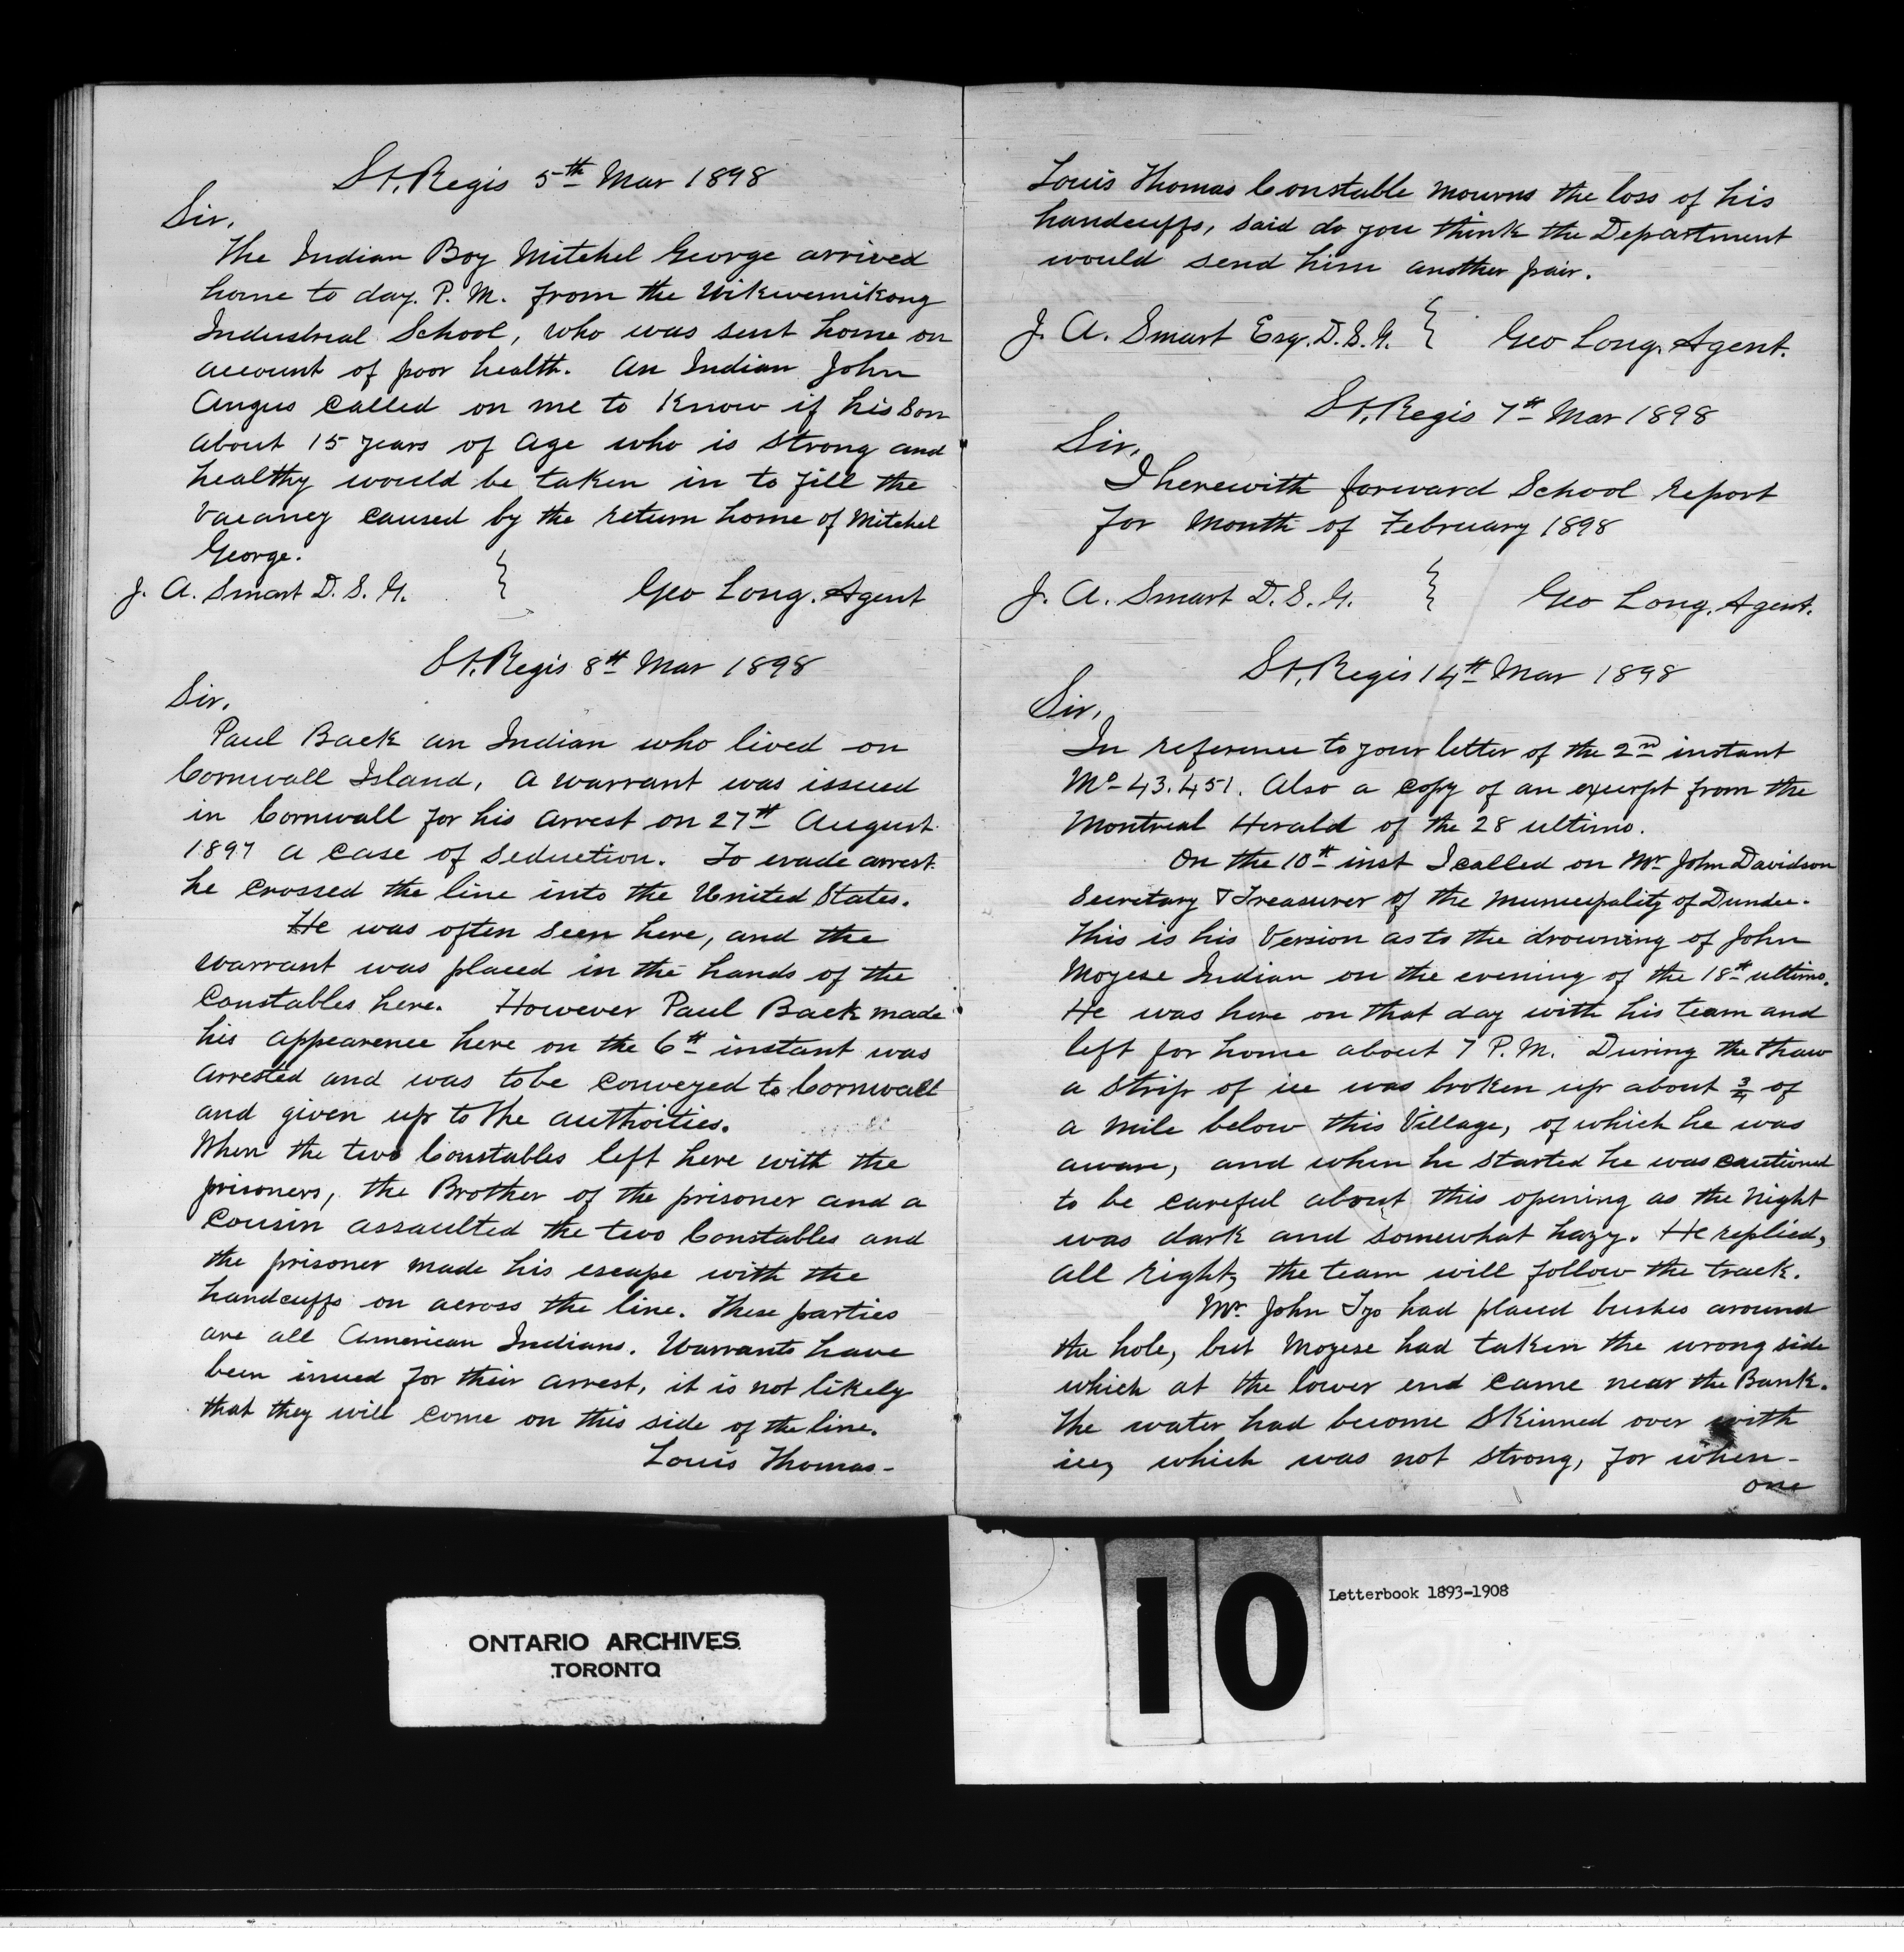 St. Regis 5th Mar 1898
Sir,
The Indian Boy Mitchel George arrived
home to day. P. M. from the Wikwemikong
Industrial School, who was sent home on
account of poor health. An Indian John
Angus called on me to know if his son
about 15 years of age who is strong and
healthy would be taken in to fill the
vacancy caused by the return home of Mitchel
George.
J. A. Smart D. S. G. } Geo Long. Agent
St. Regis 8th Mar 1898
Sir,
Paul Back an Indian who lived on
Cornwall Island, a warrant was issued
in Cornwall for his arrest on 27th August
1897 a case of seduction. To evade arrest
he crossed the line into the United States.
He was often seen here, and the
warrant was placed in the hands of the
Constables here. However Paul Back made
his appearence here on the 6th instant was
arrested and was to be conveyed to Cornwall
and given up to the authoities.
When the two Constables left here with the
prisoners, the Brother of the prisoner and a
cousin assaulted the two Constables and
the prisoner made his escape with the
handcuffs on across the line. These parties
are all American Indians. Warrants have
been issued for their arrest, it is not likely
that they will come on this side of the line.
Louis Thomas-
Louis Thomas Constable mourns the loss of his
handcuffs, said do you think the Department
would send him another pair.
J. A. Smart Esq. D. S. G. } Geo Long. Agent.
St. Regis 7th Mar 1898
Sir,
I herewith forward School report
for month of February 1898
J. A. Smart D. S. G. } Geo Long. Agent.
St. Regis 14th Mar 1898
Sir,
In reference to your letter of the 2nd instant
No- 43.451. Also a copy of an exurpt from the
Montreal Herald of the 28 ultimo.
On the 10th inst I called on Mr. John Davidson
Secretary & Treasurer of the municipality of Dundee.
This is his version as to the drowning of John
Moyese Indian on the evening of the 18th ultimo.
He was here on that day with his team and
left for home about 7 P. M. During the thaw
a strip of ice was broken up about 3/4 of
a mile below this Village, of which he was
aware, and when he started he was cautioned
to be careful about this opening as the night
was dark and somewhat hazy. He replied,
all right, the team will follow the track.
Mr. John Tyo had placed bushes around
the hole, but Moyese had taken the wrong side
which at the lower end came near the Bank.
The water had become skinned over with
ice, which was not strong, for when-
one
10
Letterbook 1893-1908
ONTARIO ARCHIVES
TORONTO